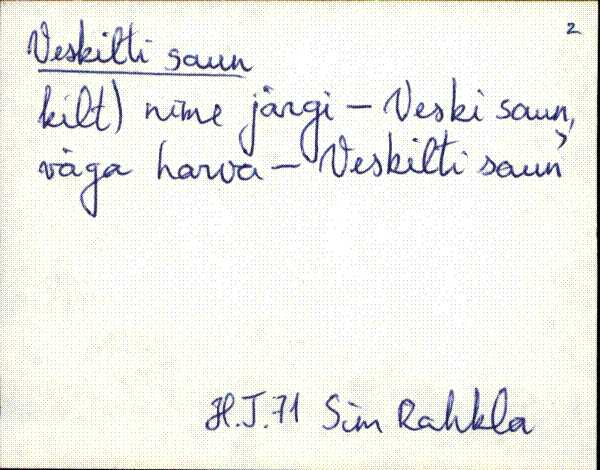 2
Veskilti saun
kilt) nime järgi – Veski saun,
väga harva – Veskilti saun
H.J.71 Sim Rahkla